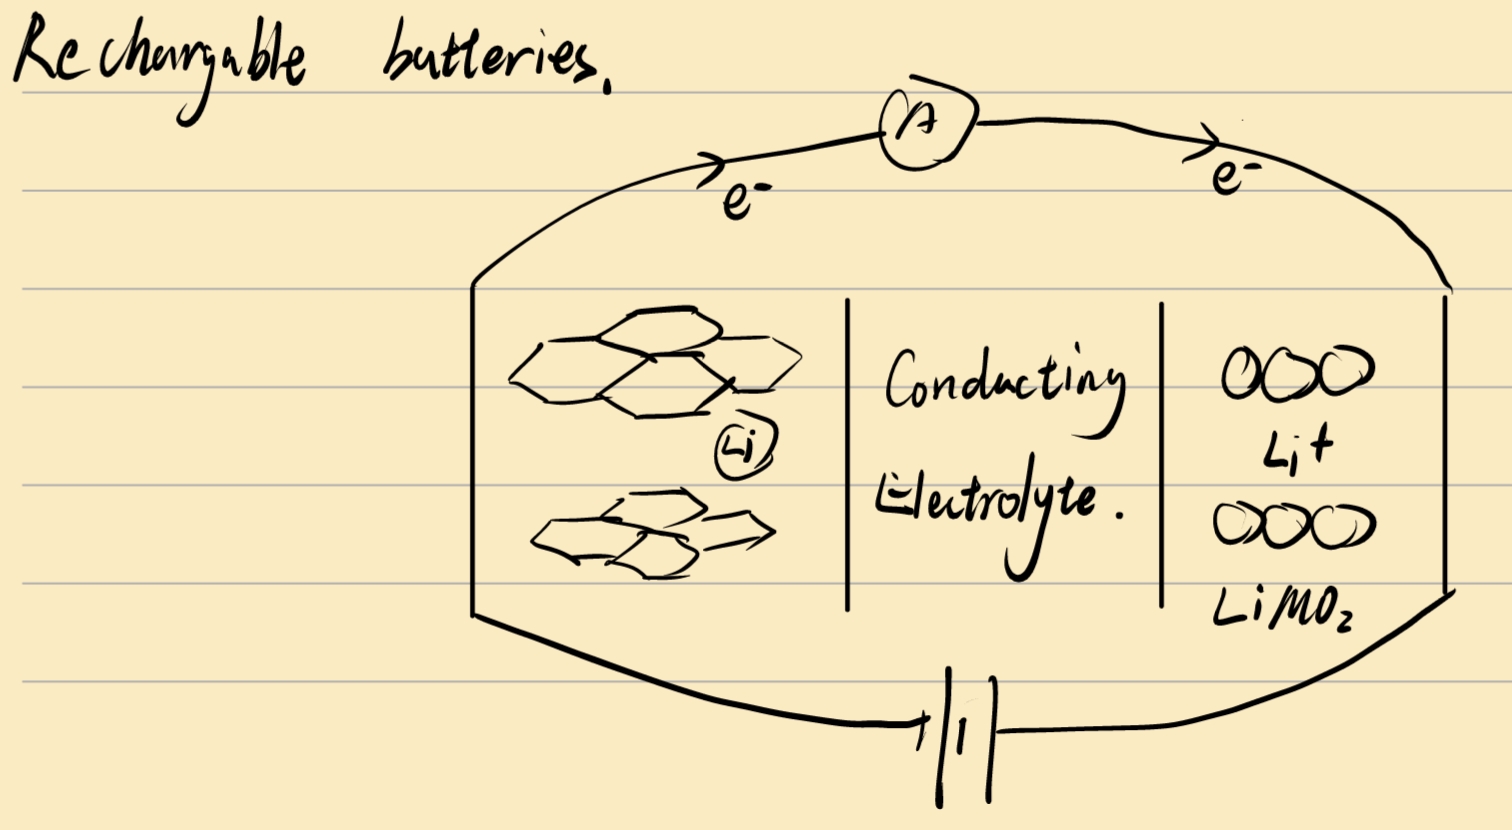 Rechargable batteries.
A
e⁻
e⁻
Conducting
Li
Li+
Electrolyte.
LiMO₂